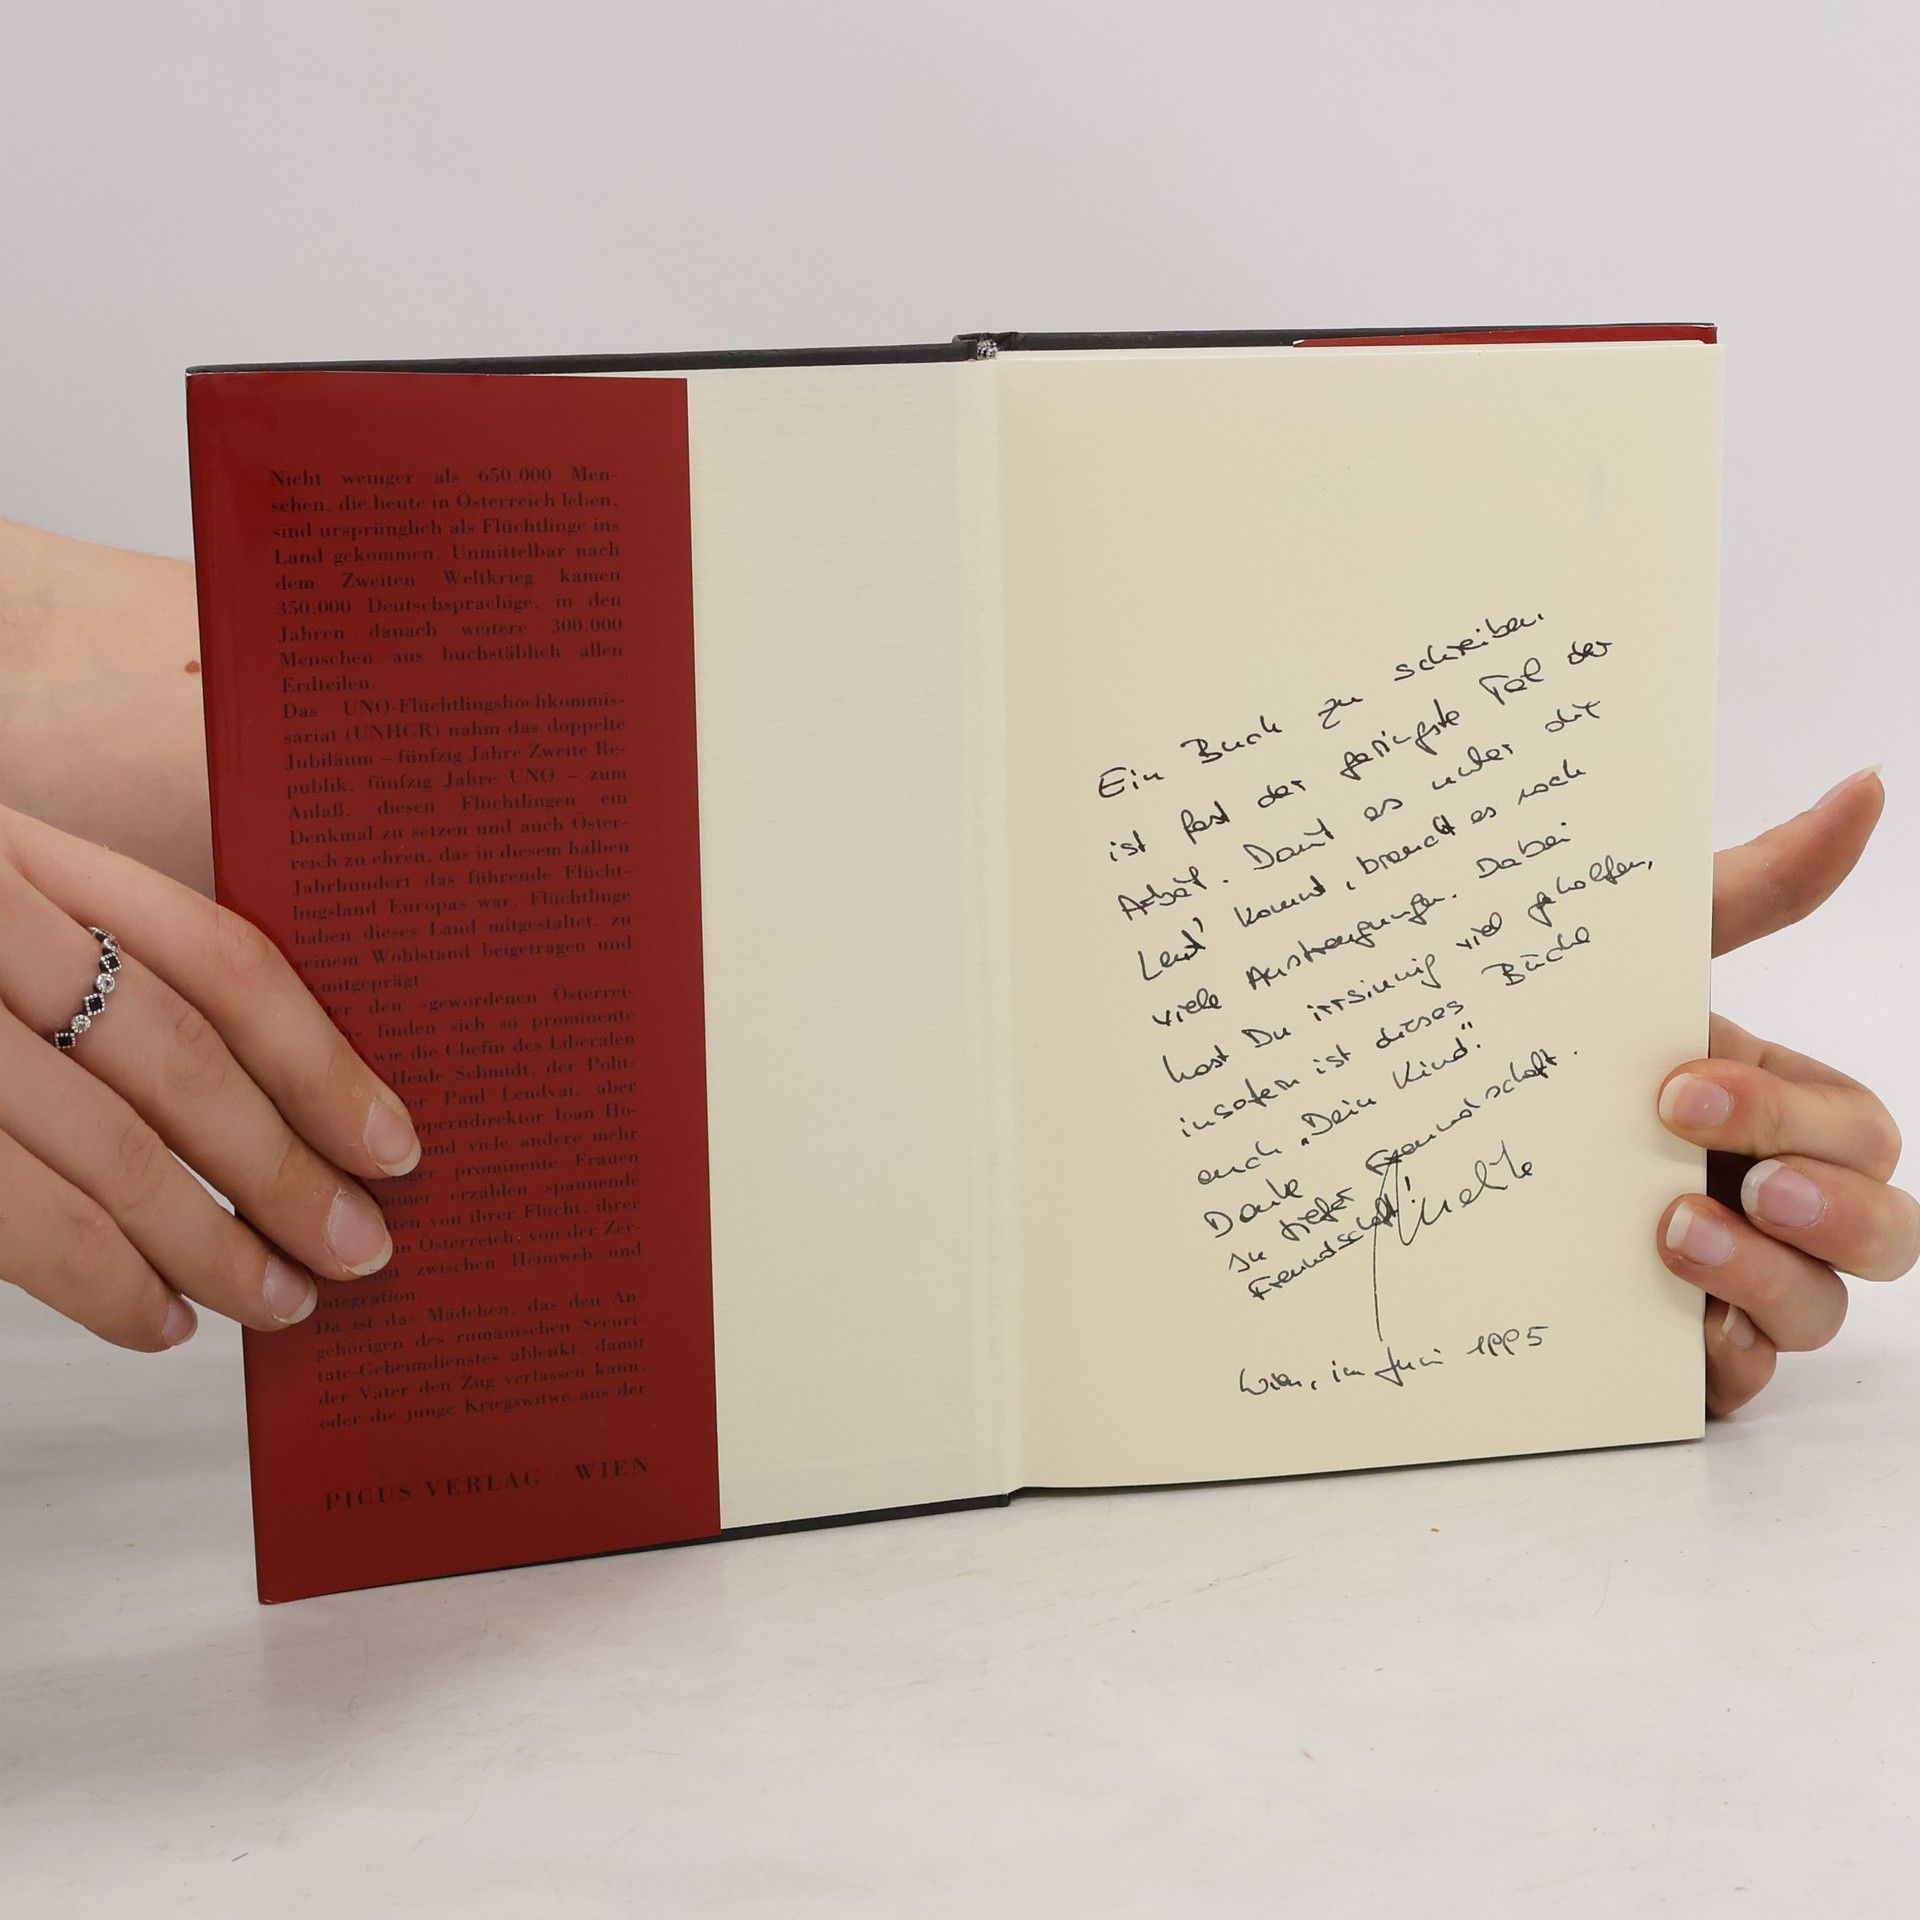 Nicht weniger als 650.000 Men-
schen, die heute in Österreich leben,
sind ursprünglich als Flüchtlinge ins
Land gekommen. Unmittelbar nach
dem Zweiten Weltkrieg kamen
350.000 Deutschsprachige, in den
Jahren danach weitere 300.000
Menschen aus buchstäblich allen
Erdteilen.
Das UNO-Flüchtlingshochkommis-
sariat (UNHCR) nahm das doppelte
Jubiläum – fünfzig Jahre Zweite Re-
publik, fünfzig Jahre UNO – zum
Anlaß, diesen Flüchtlingen ein
Denkmal zu setzen und auch Öster-
reich zu ehren, das in diesem halben
Jahrhundert das führende Flücht-
lingsland Europas war. Flüchtlinge
haben dieses Land mitgestaltet, zu
seinem Wohlstand beigetragen und
mitgeprägt
den »gewordenen Österrei-
finden sich so prominente
wie die Chefin des Liberalen
Heide Schmidt, der Polit-
Paul Lendvai, aber
operndirektor Ioan Ho-
und viele andere mehr
prominente Frauen
erzählen spannende
von ihrer Flucht, ihrer
in Österreich, von der Zer-
zwischen Heimweh und
Integration.
Da ist das Mädchen, das den An-
gehörigen des rumänischen Securi-
tate-Geheimdienstes ablenkt, damit
der Vater den Zug verlassen kann,
oder die junge Kriegswitwe aus der
PICUS VERLAG · WIEN
Ein Buch zu schreiben,
ist fast der geringste Teil der
Arbeit. Damit es unter die
Leut' kommt, braucht es noch
viele Anstrengungen. Dabei
hast Du irrsinnig viel geholfen,
insofern ist dieses Büchl
auch „Dein Kind".
Danke Freundschaft.
In tiefer
Freundschaft!
Wien, im Juni 1995